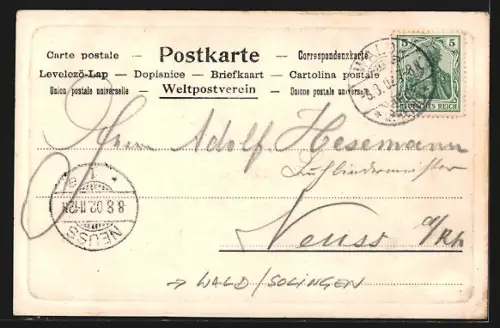 Carte postale — Postkarte — Correspondenzkarte
Levelező-Lap — Dopisnice — Briefkaart — Cartolina postale
Union postale universelle — Weltpostverein — Unione postale universale
5 5
DEUTSCHES REICH
Herrn Adolf Hesemann
Neuss a/Rh
8.8.02.11-12
NEUSS
→ WALD/SOLINGEN